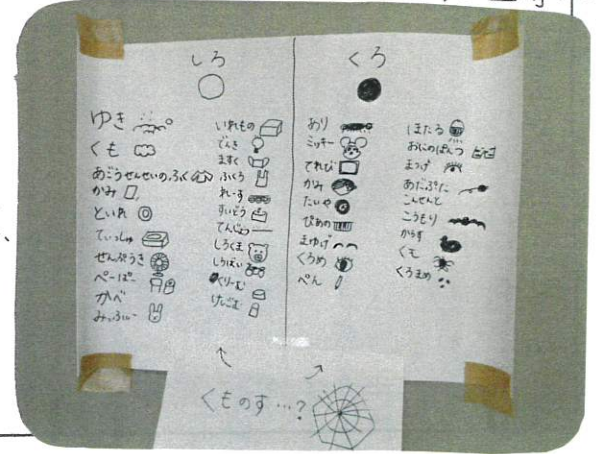 しろ
ゆき
くも
あごうせんせいのふく
かみ
といれ
てぃっしゅ
せんぷうき
ぺーぱー
かべ
みっふぃー
いれもの
でんき
ますく
ふくろ
れーす
すいどう
てんじょう
しろくま
しろばい
くりーむ
けしごむ
くろ
あり
ミッキー
てれび
かみ
たいや
ぴあの
まゆげ
くろめ
ぺん
ほたる
おにのぱんつ
まつげ
あだぷた
こんせんと
こうもり
からす
くも
くろまめ
くものす…?